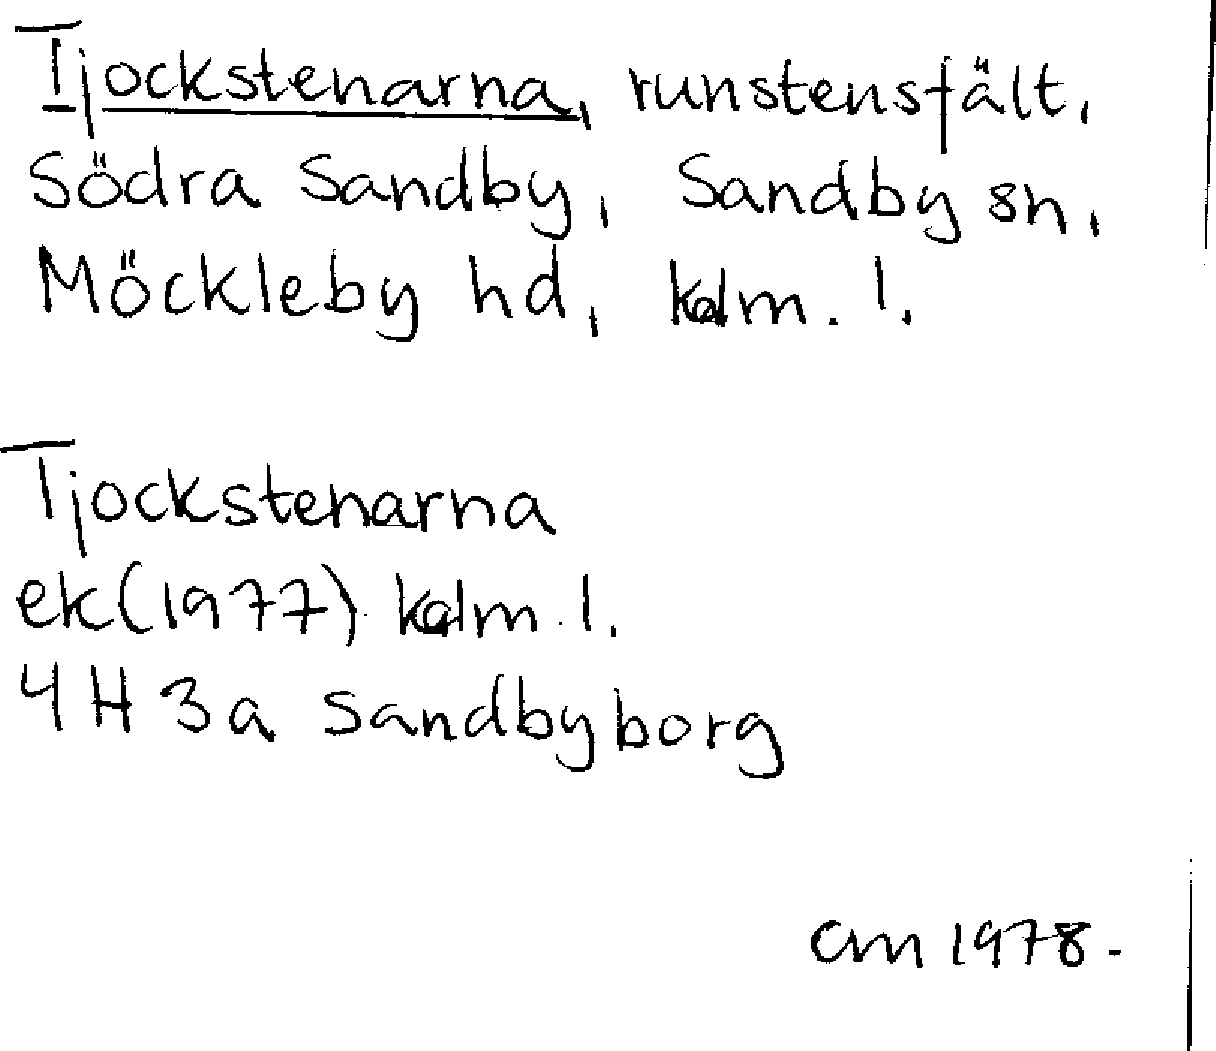 Tjockstenarna, runstensfält,
Södra Sandby, Sandby sn,
Möckleby hd, kalm. l.
Tjockstenarna
ek(1977) kalm. l.
4H 3a Sandbyborg
cm 1978.